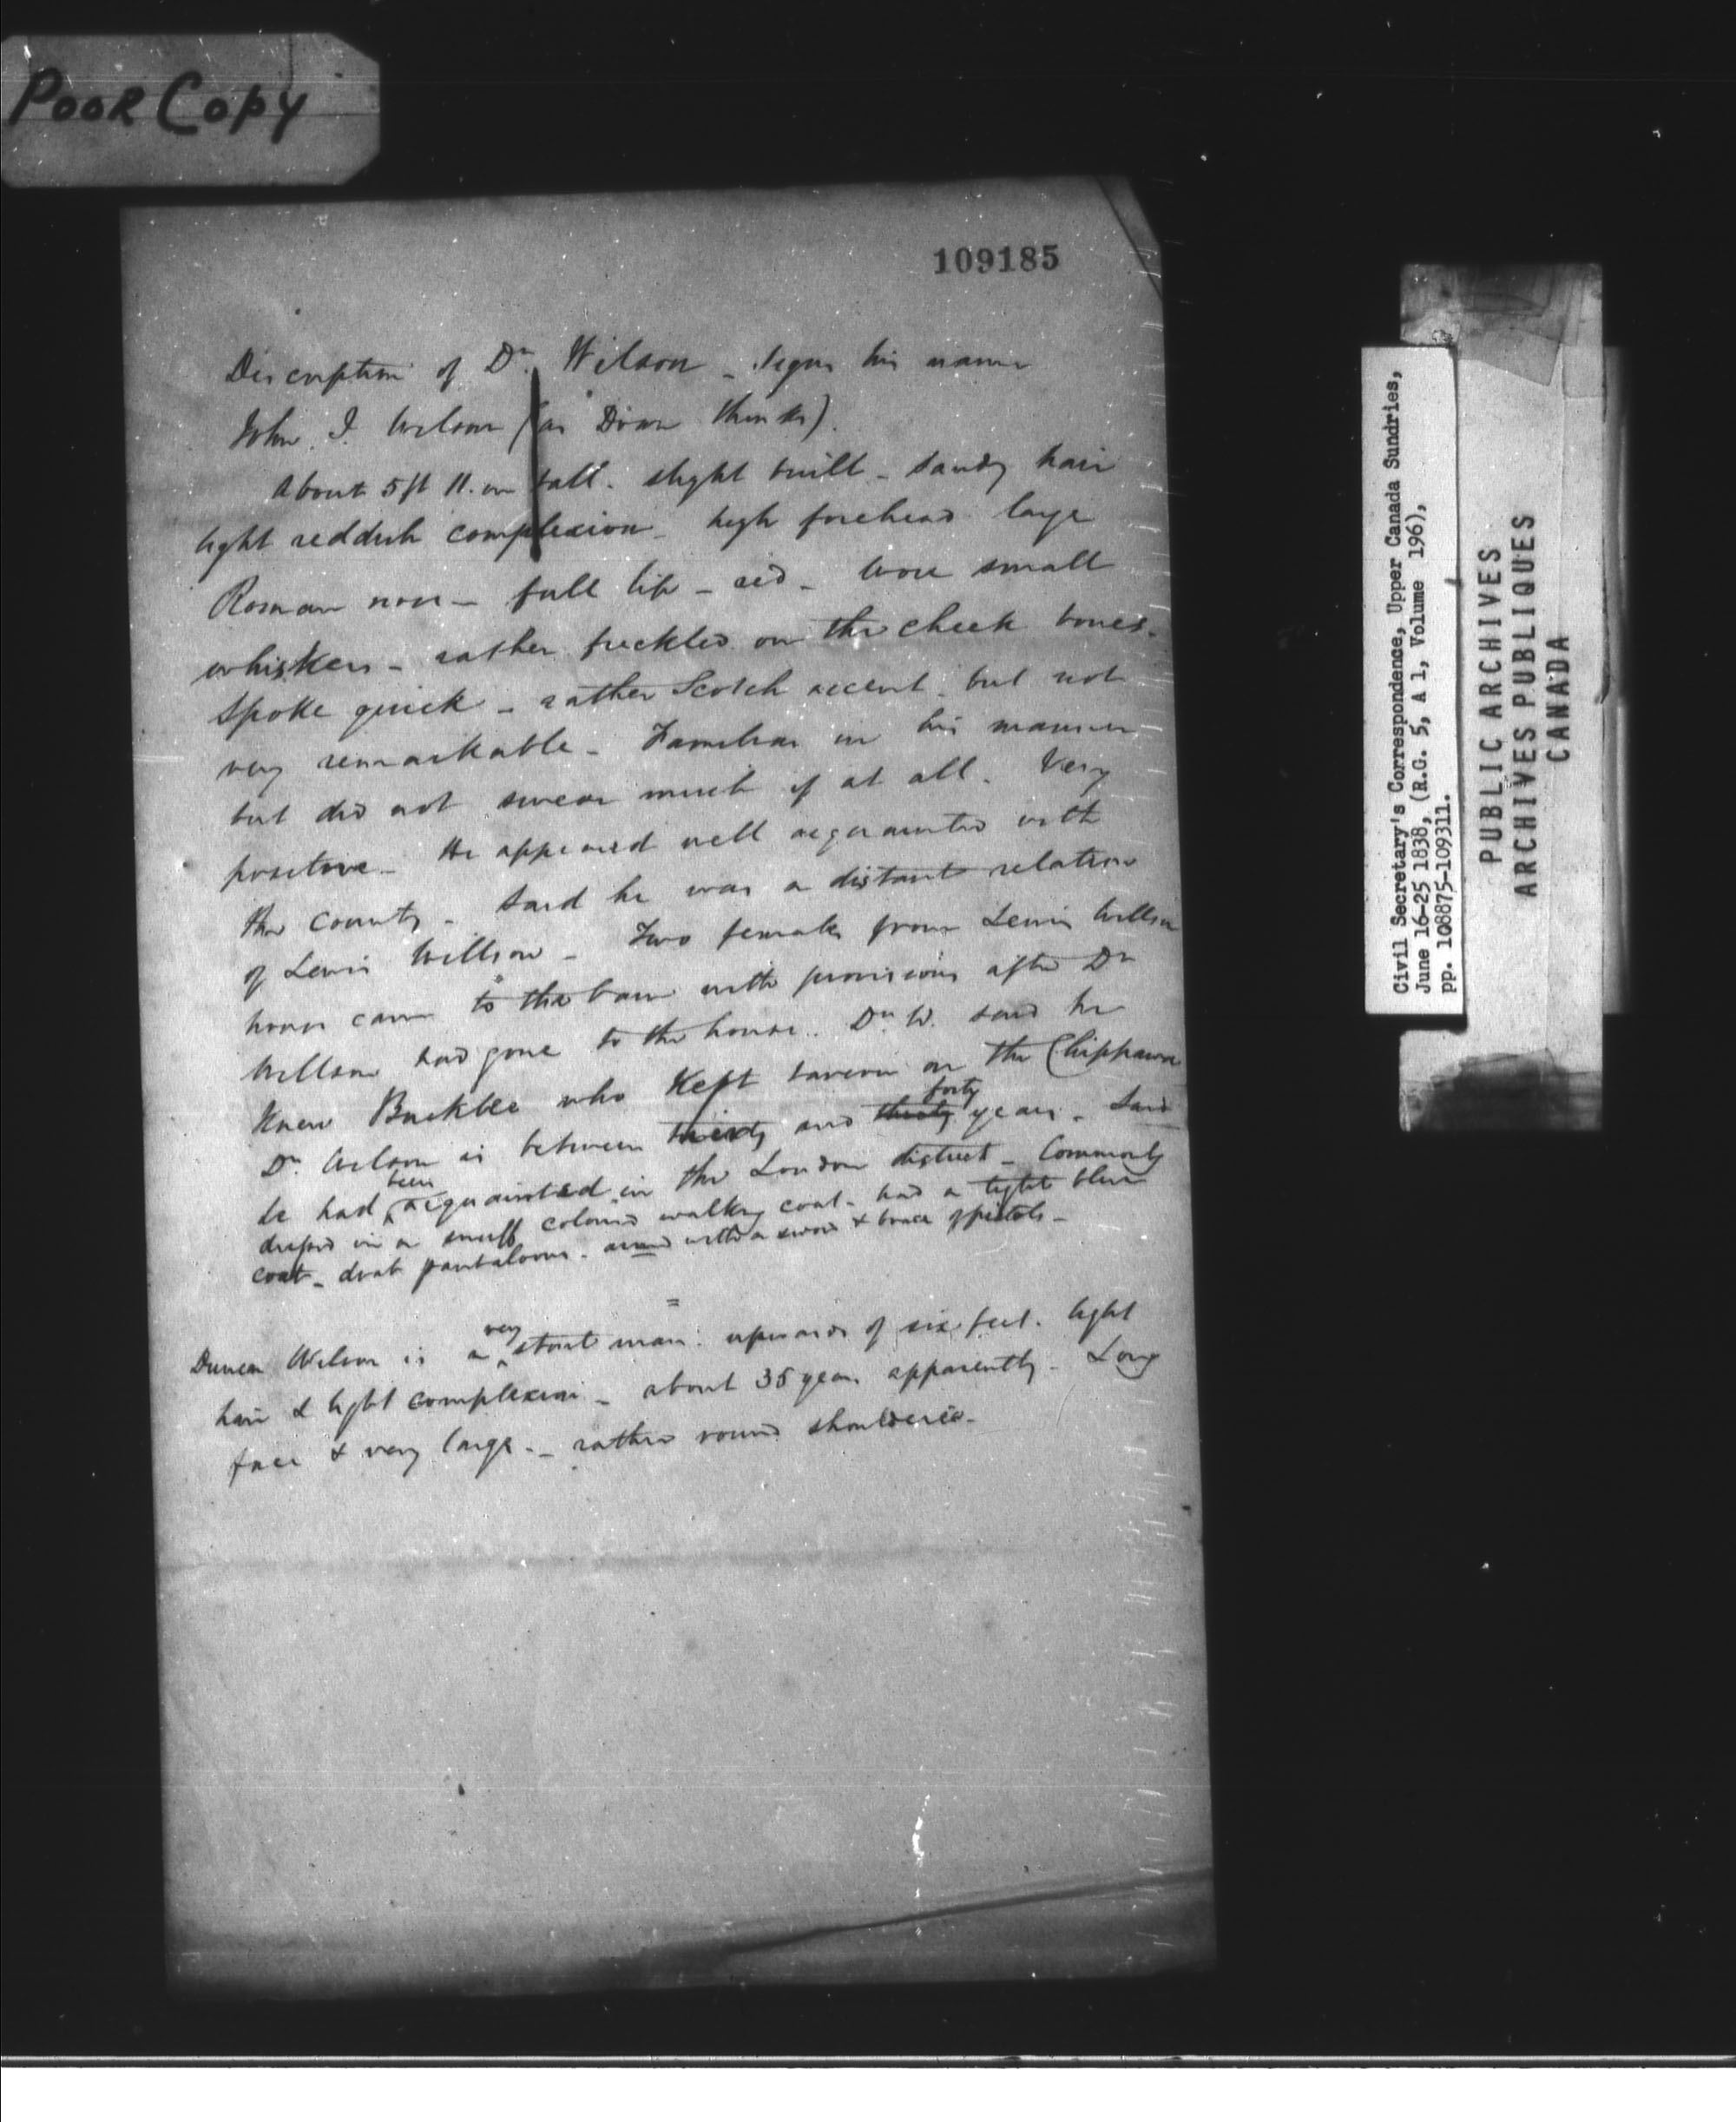 Poor Copy
109185
Discription of Dr. Wilson - Signs his name
John I. Wilson (as Dixon thinks).
About 5 ft 11. in tall. slight built - sandy hair
light reddish complexion - high forehead large
Roman nose - full lip - red - wore small
whiskers - rather freckled on the cheek bones -
Spoke quick - rather Scotch accent. but not
very remarkable - Familiar in his manner
but did not swear much if at all. Very
positive - He appeared well acquainted with
the County - Said he was a distant relation
of Lewis Willson - Two females from Lewis Willson
house came to the barn with provisions after Dr
Willson had gone to the house. Dr. W. said he
knew Bucklee who kept tavern on the Chippawa
Dr. Wilson is between thirty and thirty forty years. Said
he had been acquainted in the London district - Commonly
dressed in a snuff colored walking coat. had a tight blue
coat - drab pantaloons. armed with a sword & brace of pistols -
Duncan Wilson is a very stout man. upwards of six feet. light
hair & light complexion - about 35 years apparently. Long
face & very large. - rather round shouldered -
Civil Secretary's Correspondence, Upper Canada Sundries,
June 16-25 1838, (R.G. 5, A 1, Volume 196),
pp. 108875-109311.
PUBLIC ARCHIVES
ARCHIVES PUBLIQUES
CANADA